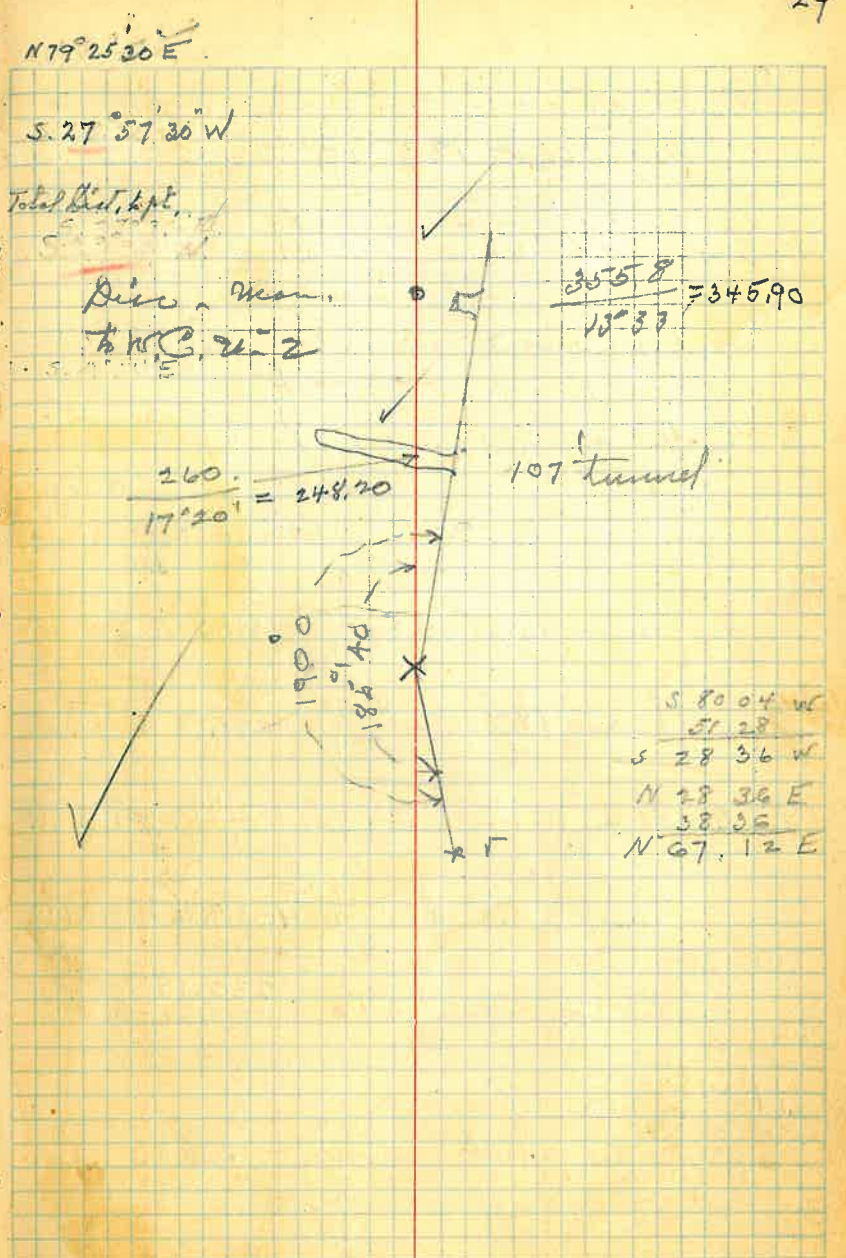 N 79° 25' 30" E
S. 27° 57' 30" W
Total Dist.
Disc - Mon.
W.C. 2
3558 / 13° 33 = 345.90
260. / 17° 20' = 248.20
107' tunnel
190° 0
S 80 04 W
51 28
S 28 36 W
N 28 36 E
38 36
N 67. 12 E